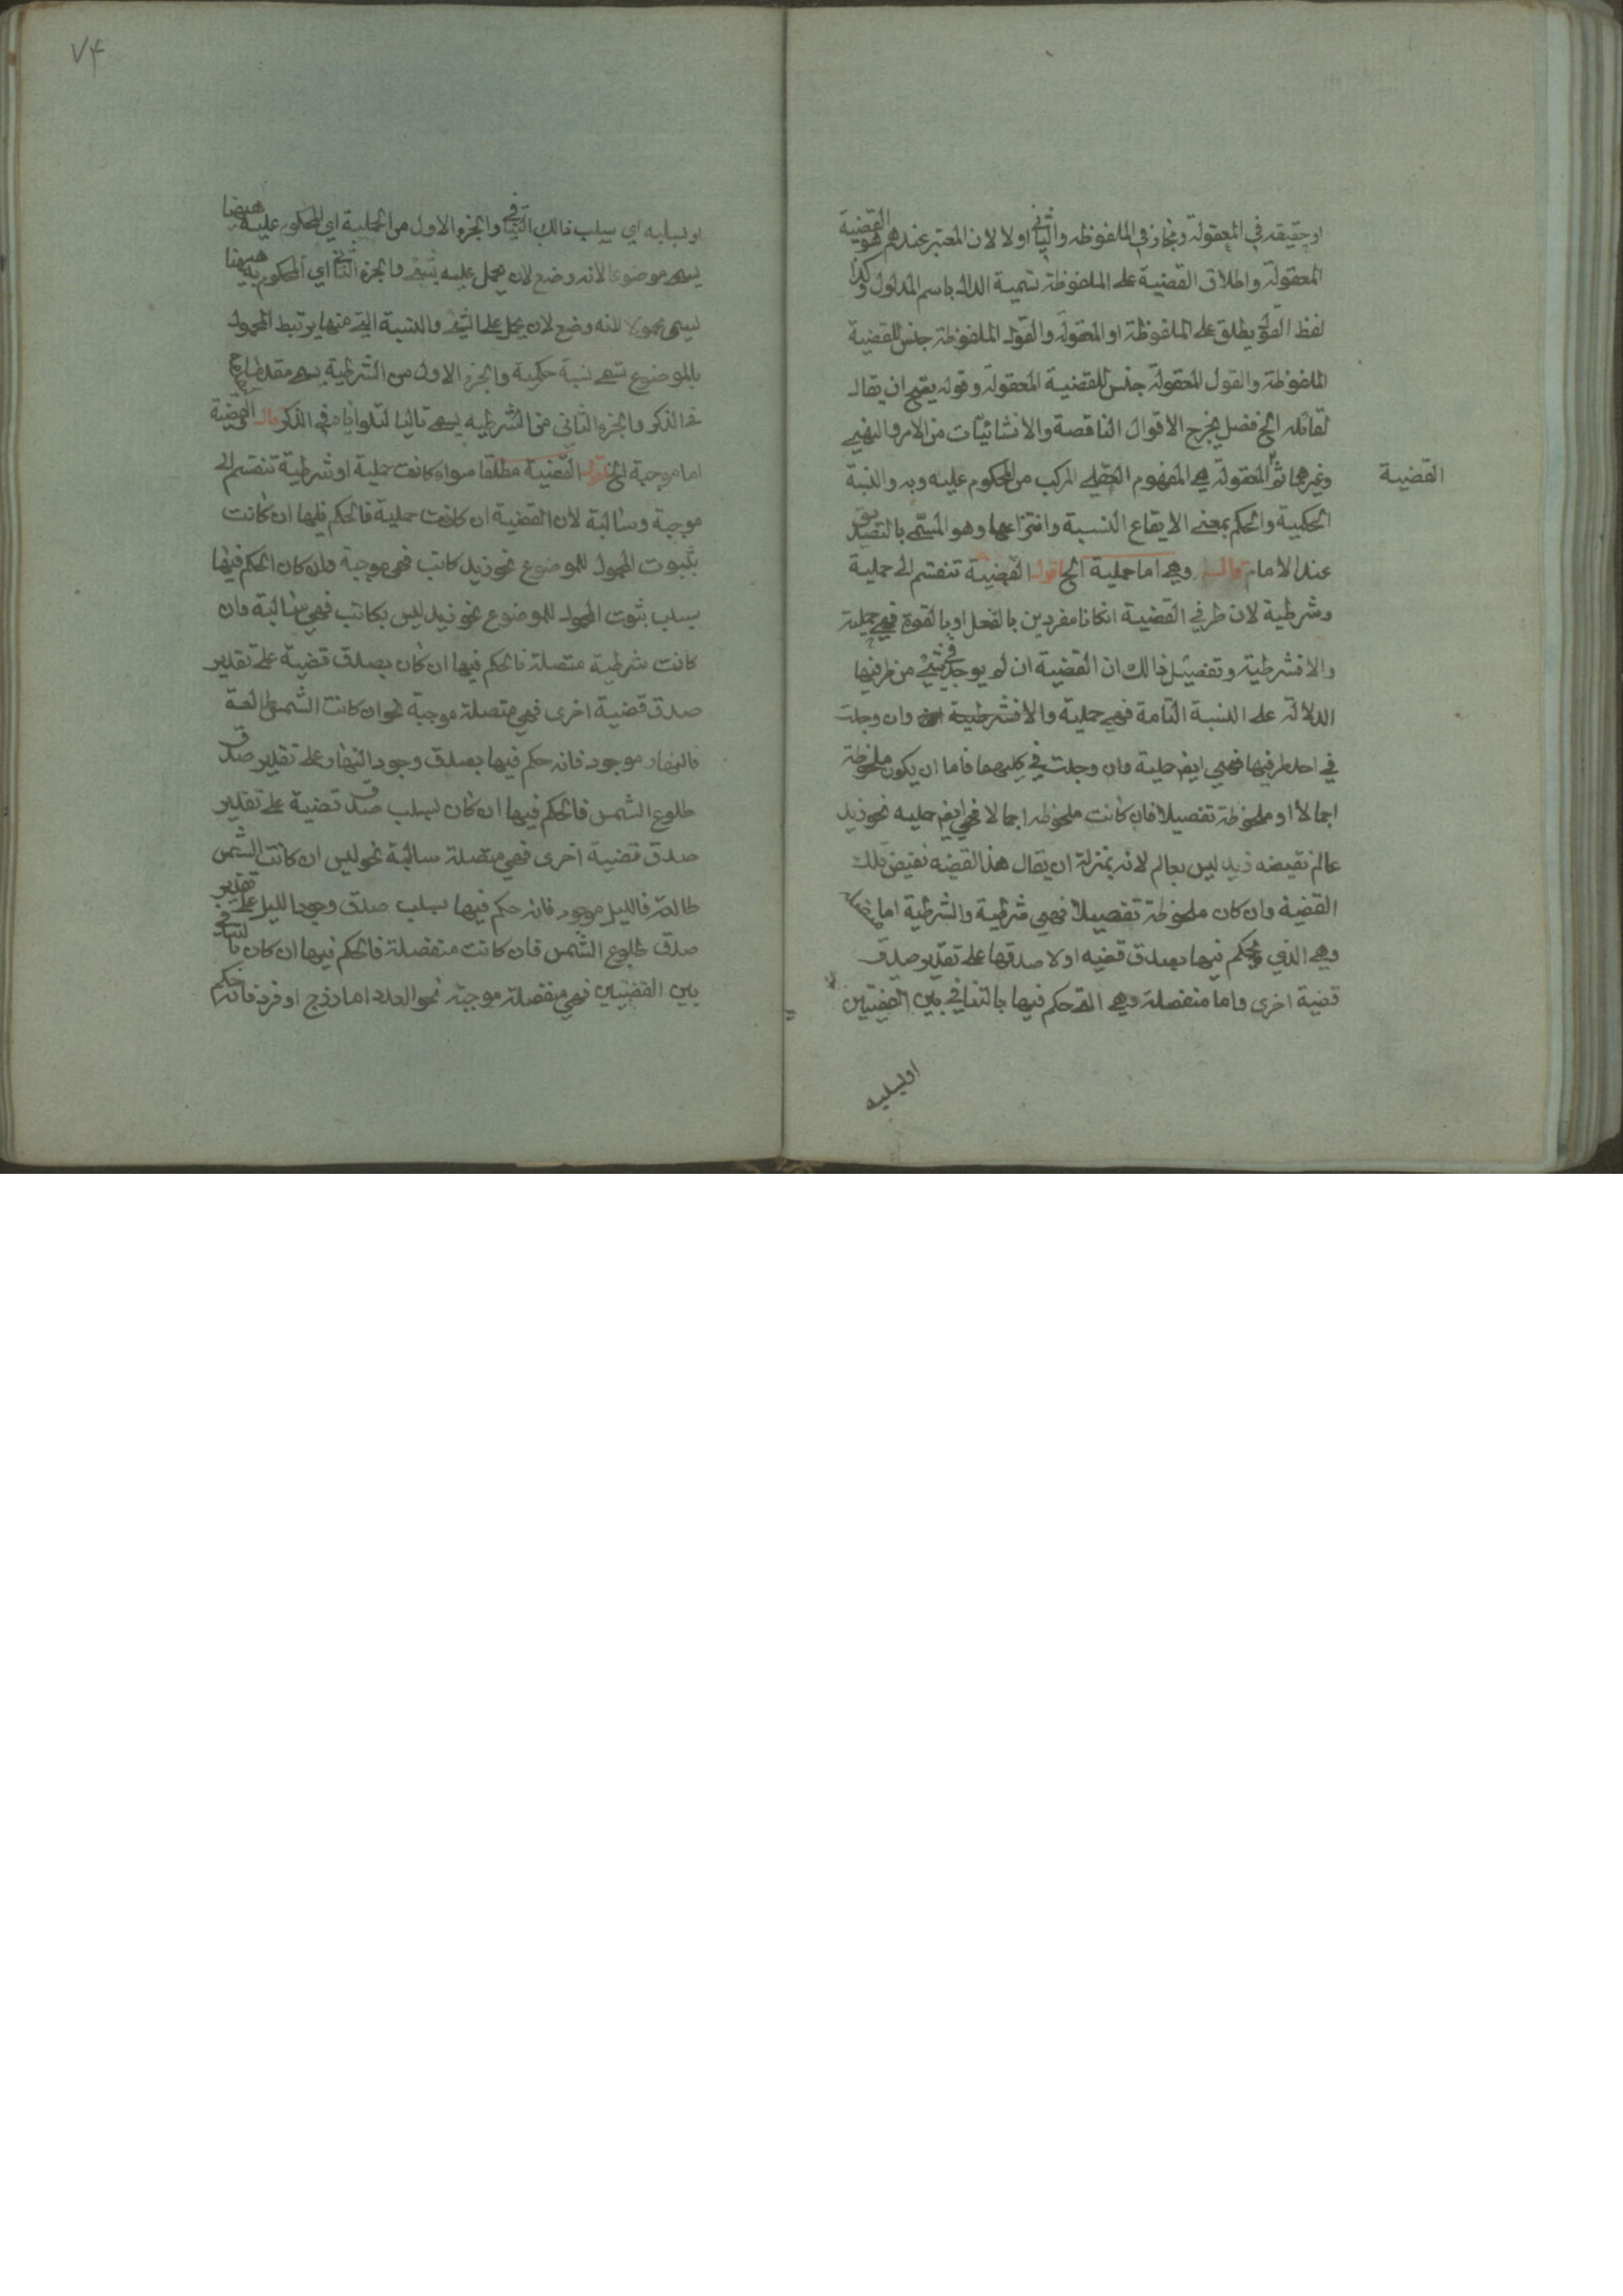 او حقيقه في المعقولة ومجاز في الملفوظه والثاني اولا لان المعتبر عندهم هو القضية
المعقولة واطلاق القضية على الملفوظة تسمية الدال باسم المدلول وكذا
لفظ القول يطلق على الملفوظة او المعقولة والقول الملفوظة جنس للقضية
الملفوظة والقول المعقولة جنس للقضية المعقولة وقوله يصح ان يقال
لقائله الخ فصل يخرج الاقوال الناقصة والانشائيات من الامر والنهي
وغيرهما ثم المعقولة هي المفهوم العقلي المركب من المحكوم عليه وبه والنسبة
القضية
الحكمية والحكم بمعنى الايقاع النسبة وانتزاعها وهو المسمى بالتصديق
عند الامام قال وهي اما حملية الخ اقول القضية تنقسم الى حملية
وشرطية لان طرفي القضية ان كانا مفردين بالفعل او بالقوة فهي حملية
والا فشرطية وتفصيل ذالك ان القضية ان لم يوجد في شئ من طرفيها
الدلالة على النسبة التامة فهي حملية والا فشرطية وان وجدت
في احد طرفيها فهي ايضا حملية وان وجدت في كليهما فاما ان يكون ملحوظة
اجمالا او ملحوظة تفصيلا فان كانت ملحوظه اجمالا فهي ايضا حمليه نحو زيد
عالم نقيضه زيد ليس بعالم لانه بمنزلة ان يقال هذا القضيه نقيض تلك
القضية وان كان ملحوظة تفصيلا فهي شرطية والشرطية اما متصلة
وهي الذي يحكم فيها بصدق قضيه او لا صدقها على تقدير صدق
قضية اخرى واما منفصلة وهي التي حكم فيها بالتنافي بين القضيتين
او بسلبه
٧۴
او بسلبه اي بسلب ذالك التنافي والجزء الاول من الحملية اي المحكوم عليه هيهنا
يسمى موضوعا لانه وضع لان يحمل عليه شئ والجزء الثاني اي المحكوم به هيهنا
يسمى محمولا لانه وضع لان يحمل على الشئ والنسبة التي منها يرتبط المحمول
بالموضوع تسمى نسبة حكمية والجزء الاول من الشرطية يسمى مقدما
في الذكر والجزء الثاني من الشرطيه يسمى تاليا لتلوه اياه في الذكر قال القضية
اما موجبة الخ اقول القضية مطلقا سواء كانت حملية او شرطية تنقسم الى
موجبة وسالبة لان القضية ان كانت حملية فالحكم فيها ان كانت
بثبوت المحمول للموضوع نحو زيد كاتب فهي موجبة وان كان الحكم فيها
بسلب ثبوت المحمول للموضوع نحو زيد ليس بكاتب فهي سالبة وان
كانت شرطية متصلة فالحكم فيها ان كان بصدق قضية على تقدير
صدق قضية اخرى فهي متصلة موجبة نحو ان كانت الشمس طالعة
فالنهار موجود فانه حكم فيها بصدق وجود النهار على تقدير صدق
طلوع الشمس فالحكم فيها ان كان بسلب صدق قضية على تقدير
صدق قضية اخرى فهي متصلة سالبة نحو ليس ان كانت الشمس
طالعة فالليل موجود فانه حكم فيها بسلب صدق وجود الليل على تقدير
صدق طلوع الشمس فان كانت منفصلة فالحكم فيها ان كان بالتنافي
بين القضيتين فهي منفصلة موجبة نحو العدد اما زوج او فرد فانه حكم